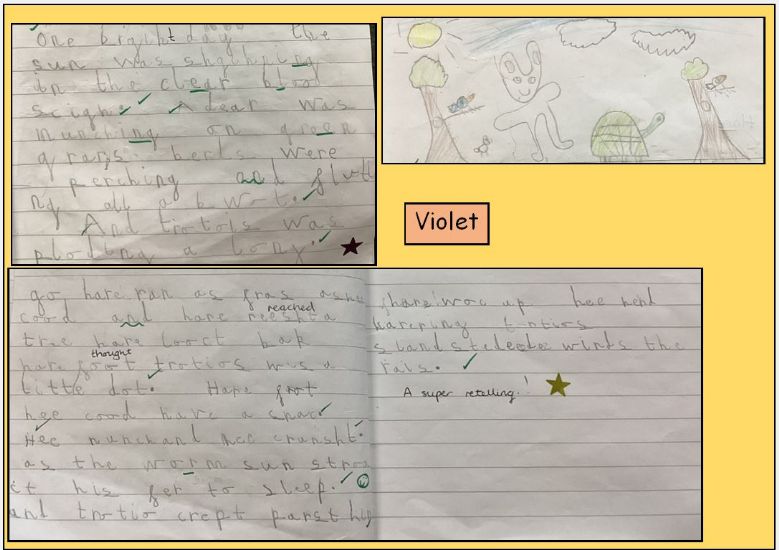 One bright day the
sun was shghining
in the clear blood
scighe A dear was
munching on green
grars. berls were
perching and flutt
ng all a bwt.
And trotois was
plotting a long.
Violet
go hare ran as fras as he
cood and hare reeshta
reached
tree hare loort bak
thought
hare foot trotios was a
little dot. Hare frot
hee cood have a snac
Hee munch and hee cransht.
as the worm sun stroo
ct his fer to sleep.
and trotio crept parst hi
hare woc up hee
trotios
slow and the
rais.
A super retelling!